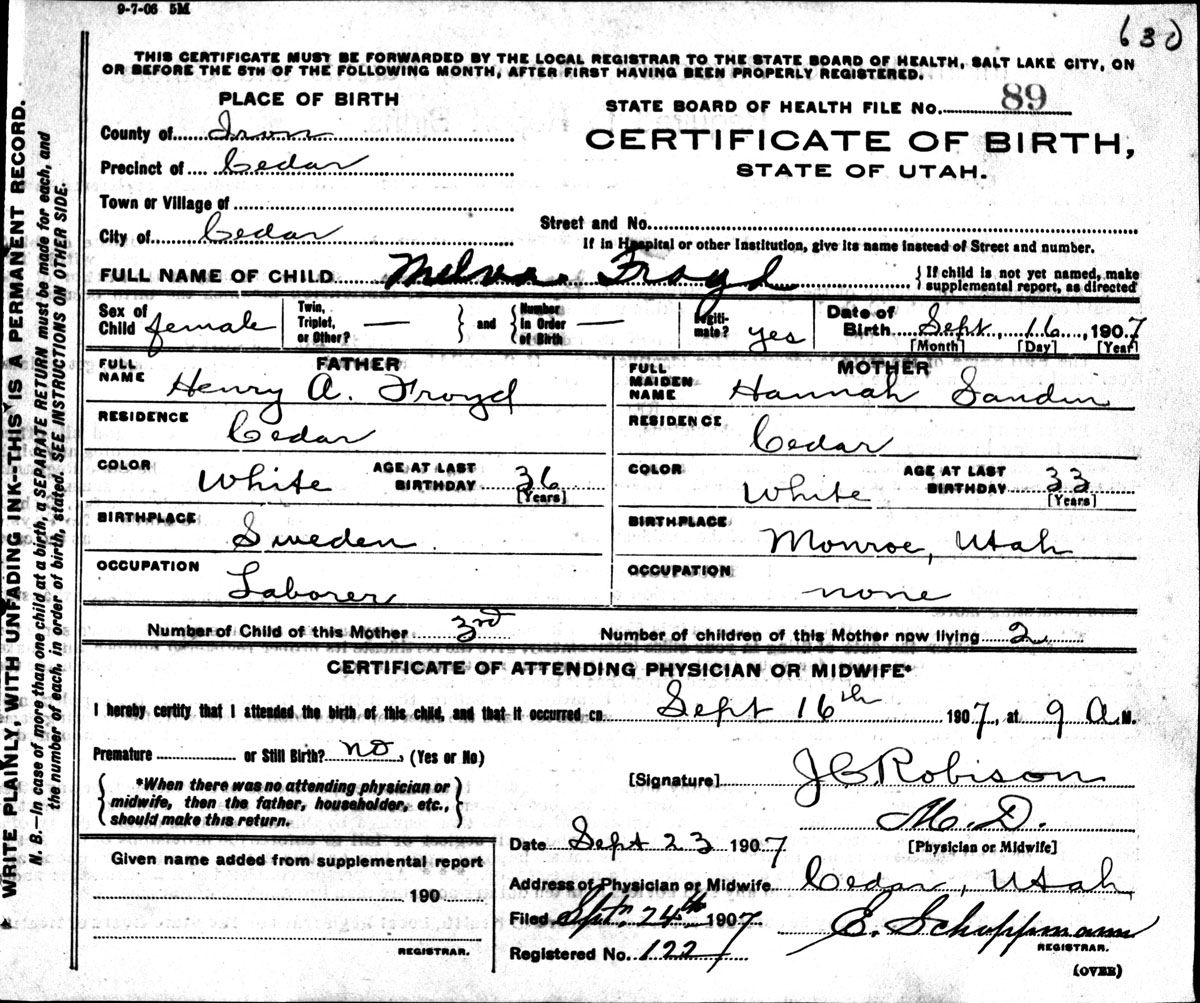 9-7-06 5M
(31)
THIS CERTIFICATE MUST BE FORWARDED BY THE LOCAL REGISTRAR TO THE STATE BOARD OF HEALTH, SALT LAKE CITY, ON
OR BEFORE THE 5TH OF THE FOLLOWING MONTH, AFTER FIRST HAVING BEEN PROPERLY REGISTERED.
PLACE OF BIRTH
STATE BOARD OF HEALTH FILE No. 89
County of Iron
CERTIFICATE OF BIRTH,
Precinct of Cedar
STATE OF UTAH.
Town or Village of
Street and No.
City of Cedar
If in Hospital or other Institution, give its name instead of Street and number.
FULL NAME OF CHILD Melva Froyd
{ If child is not yet named, make
supplemental report, as directed
Sex of Child female
Twin, Triplet, or Other? —
} and { Number In Order of Birth —
Legiti-mate? yes
Date of Birth Sept, 16, 1907
[Month] [Day] [Year]
FATHER
FULL NAME Henry A. Froyd
MOTHER
FULL MAIDEN NAME Hannah Sandin
RESIDENCE Cedar
RESIDENCE Cedar
COLOR White AGE AT LAST BIRTHDAY 36 [Years]
COLOR White AGE AT LAST BIRTHDAY 33 [Years]
BIRTHPLACE Sweden
BIRTHPLACE Monroe, Utah
OCCUPATION Laborer
OCCUPATION none
Number of Child of this Mother 3rd Number of children of this Mother now living 2
CERTIFICATE OF ATTENDING PHYSICIAN OR MIDWIFE*
I hereby certify that I attended the birth of this child, and that it occurred on Sept 16th 1907, at 9 A.M.
Premature or Still Birth? no, (Yes or No)
{ *When there was no attending physician or
midwife, then the father, householder, etc.,
should make this return. }
[Signature] J C Robison
M.D.
[Physician or Midwife]
Date Sept 23 1907
Given name added from supplemental report
190
REGISTRAR.
Address of Physician or Midwife Cedar, Utah
Filed Septn 24th 1907 E. Schoppmann
REGISTRAR.
Registered No. 122
(OVER)
WRITE PLAINLY, WITH UNFADING INK--THIS IS A PERMANENT RECORD.
N. B.—In case of more than one child at a birth, a SEPARATE RETURN must be made for each, and
the number of each, in order of birth, stated. SEE INSTRUCTIONS ON OTHER SIDE.